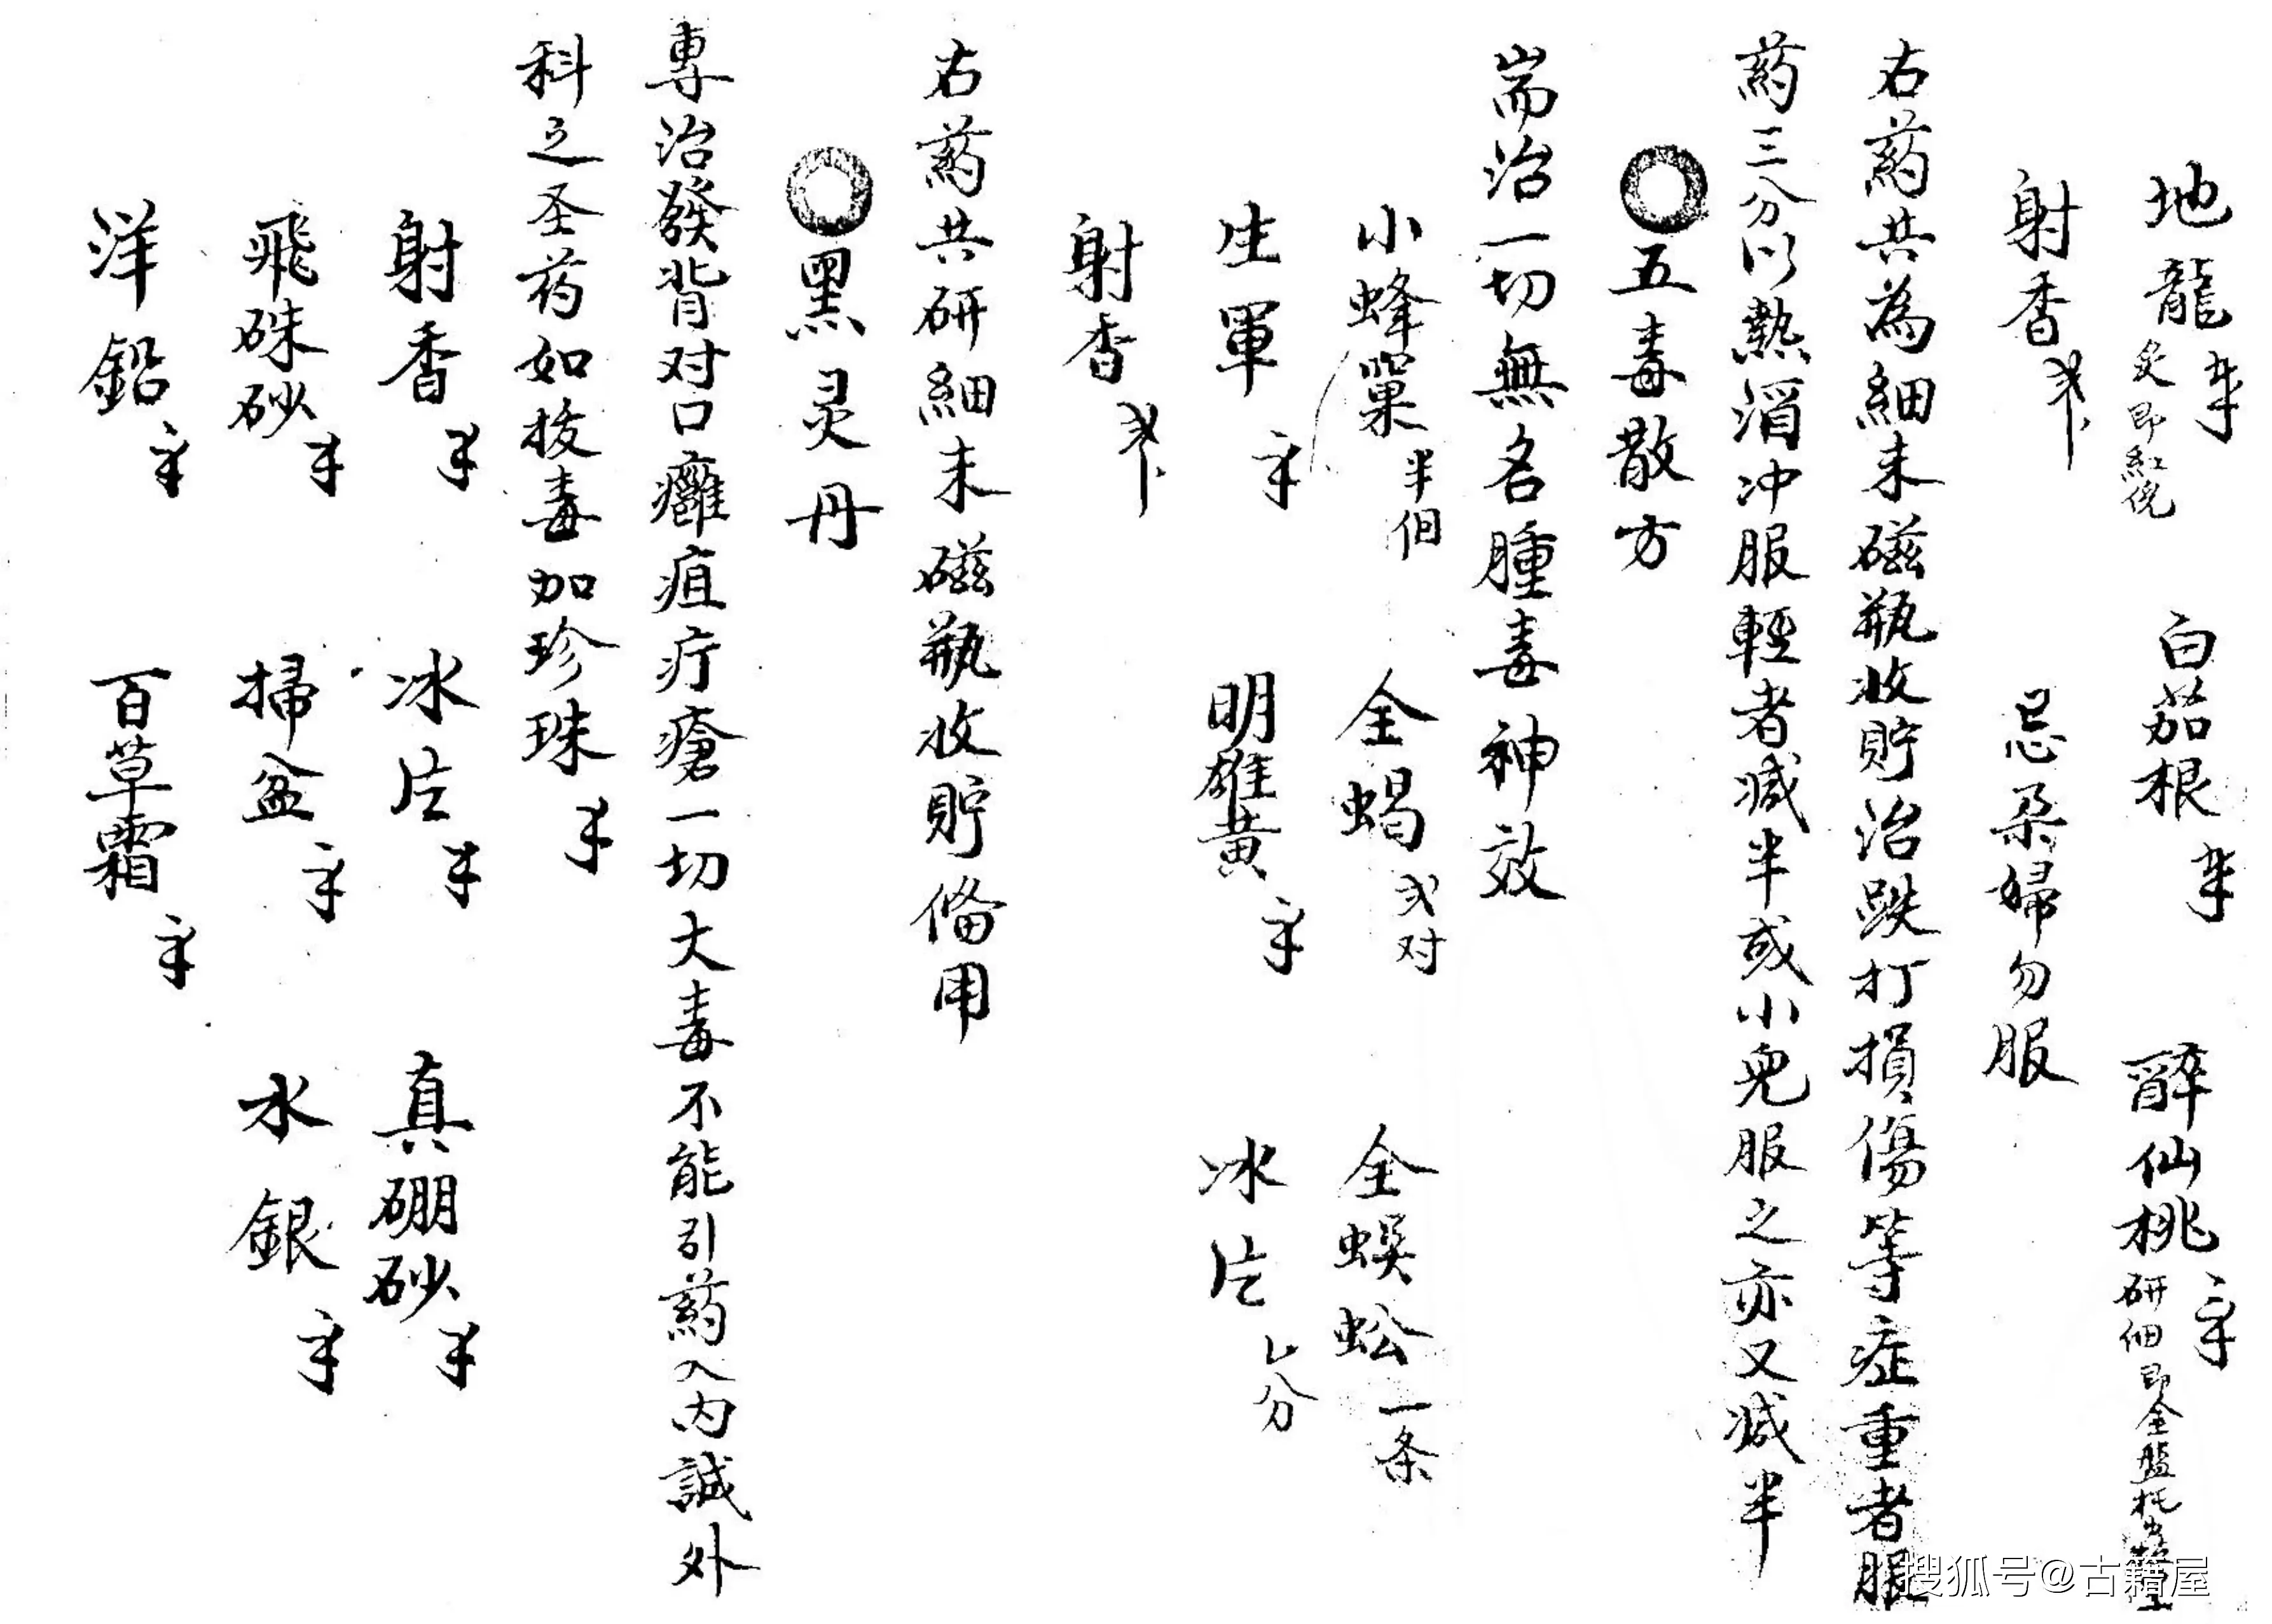 地龍 炙即紅 白茄根 醉仙桃 研细即全盤托
射香 忌朵婦勿服
右药共為細末磁瓶收貯治跌打損傷等症重者服
药三分以熱酒冲服輕者减半或小兒服之亦又减半
五毒散方
耑治一切無名腫毒神效
小蜂巢 半個 全蝎 弍对 全蜈蚣 一条
生軍 明雄黄 冰片 分
射香
右药共研細末磁瓶收貯俻用
黑灵丹
專治發背对口癰疽疔瘡一切大毒不能引药入内誠外
科之圣药如拔毒加珍珠
射香 冰片 真硼砂
飛硃砂 掃盆 水銀
洋鉛 百草霜
搜狐号@古籍屋